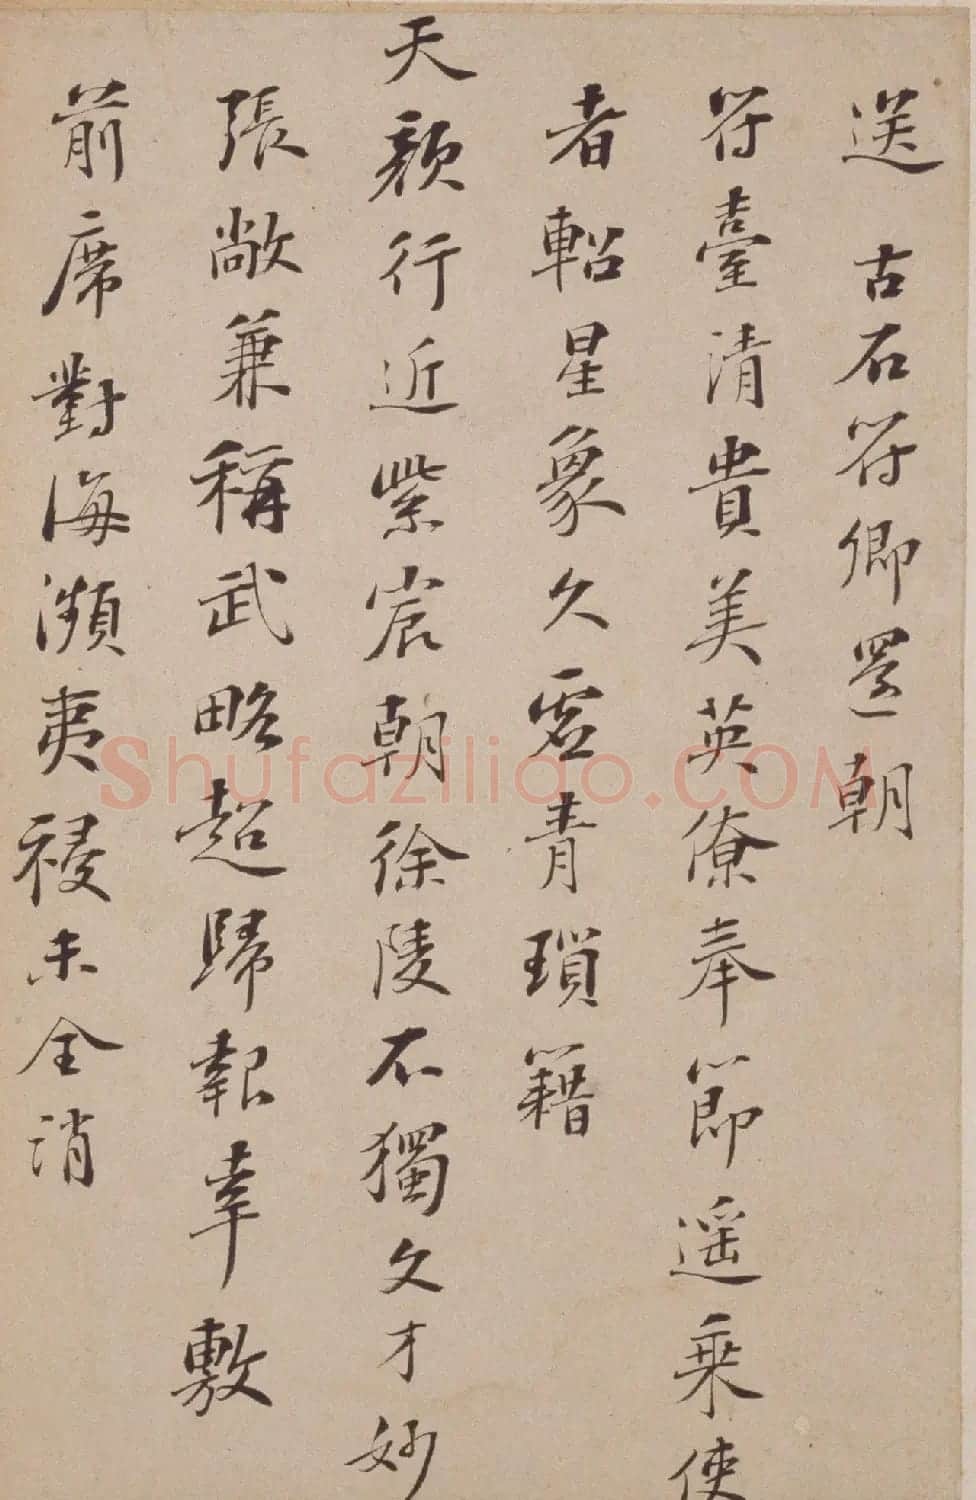 送 古石符卿還朝
符臺清貴美英僚奉節遥乗使
者軺星象久虚青瑣籍
天顔行近紫宸朝徐陵不獨文才妙
張敞兼稱武略超歸報幸敷
前席對海瀕夷祲未全消
Shufaziliao.COM